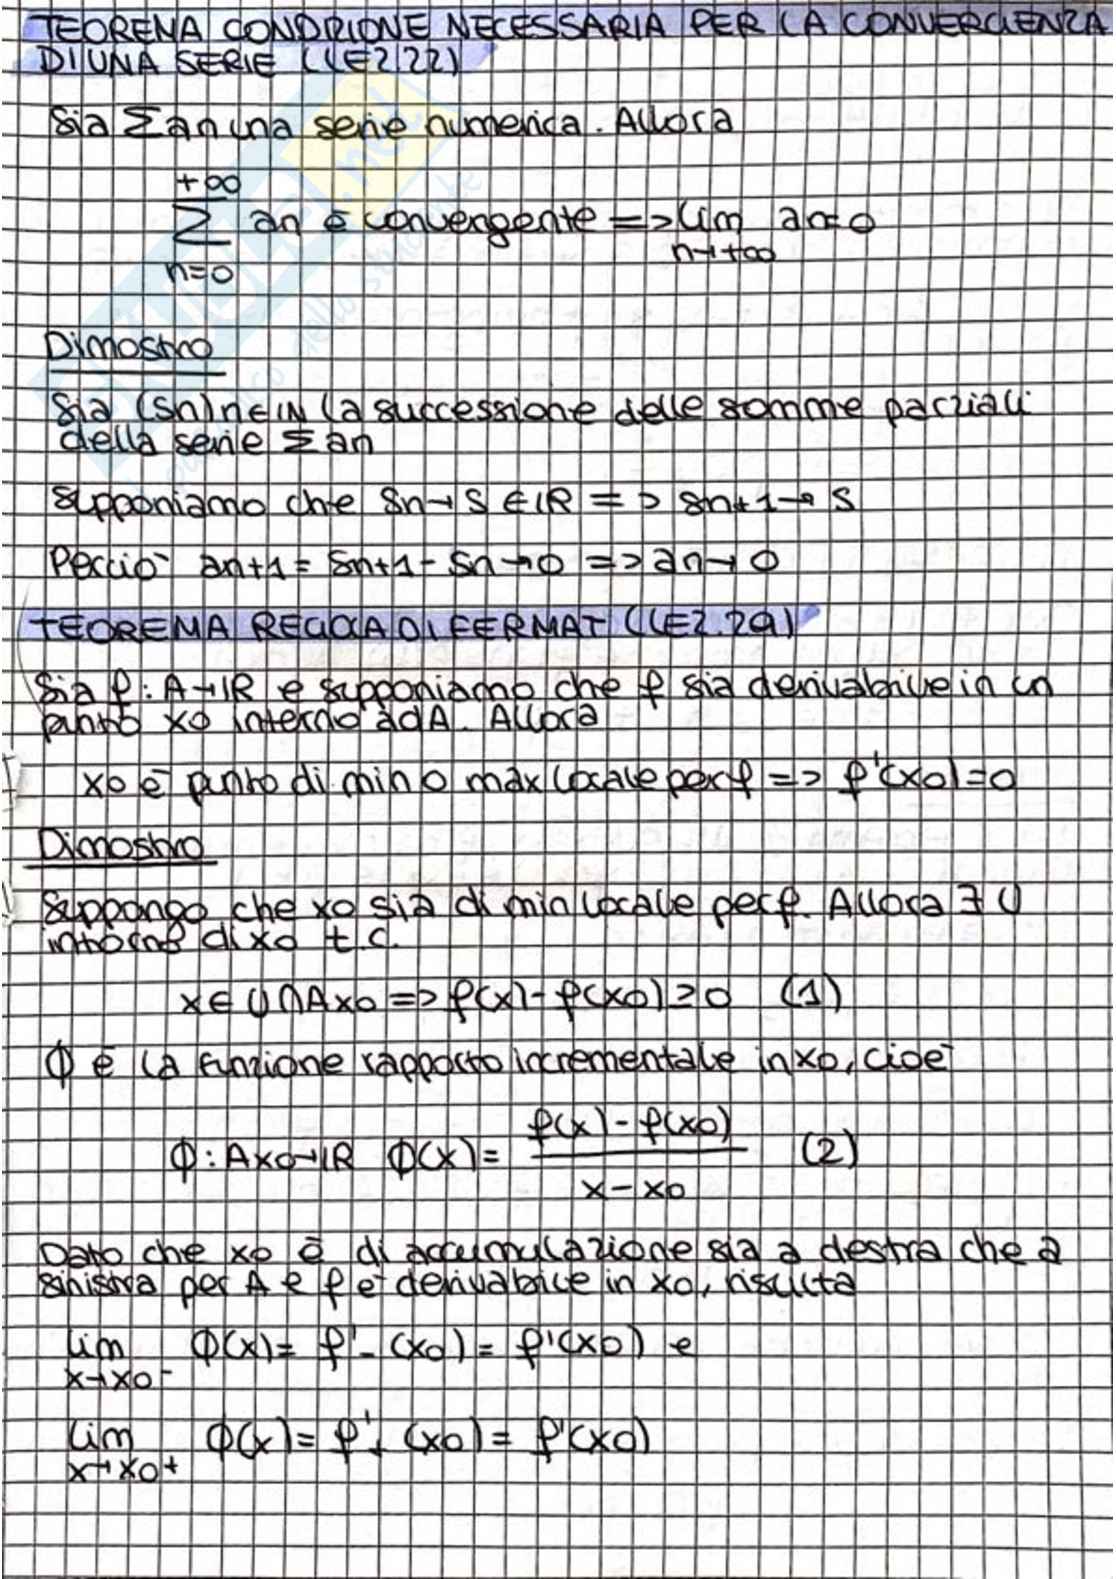 TEOREMA CONDIZIONE NECESSARIA PER LA CONVERGENZA
DI UNA SERIE (LEZ.22)
Sia Σan una serie numerica. Allora
+∞
Σ an è convergente => lim an=0
n=0 n→+∞
Dimostro
Sia (Sn)n∈IN la successione delle somme parziali
della serie Σan
Supponiamo che Sn→S ∈IR => Sn+1→S
Perciò an+1 = Sn+1 - Sn→0 => an→0
TEOREMA REGOLA DI FERMAT (LEZ.29)
Sia f: A→IR e supponiamo che f sia derivabile in un
punto x0 interno ad A. Allora
x0 è punto di min o max locale per f => f'(x0)=0
Dimostro
Suppongo che x0 sia di min locale per f. Allora ∃ U
intorno di x0 t.c.
x∈U∩Ax0 => f(x)-f(x0)≥0 (1)
Φ è la funzione rapporto incrementale in x0, cioè
Φ: Ax0→IR Φ(x)= f(x)-f(x0) (2)
x-x0
Dato che x0 è di accumulazione sia a destra che a
sinistra per A e f è derivabile in x0, risulta
lim Φ(x)= f'-(x0)= f'(x0) e
x→x0-
lim Φ(x)= f'+(x0)= f'(x0)
x→x0+